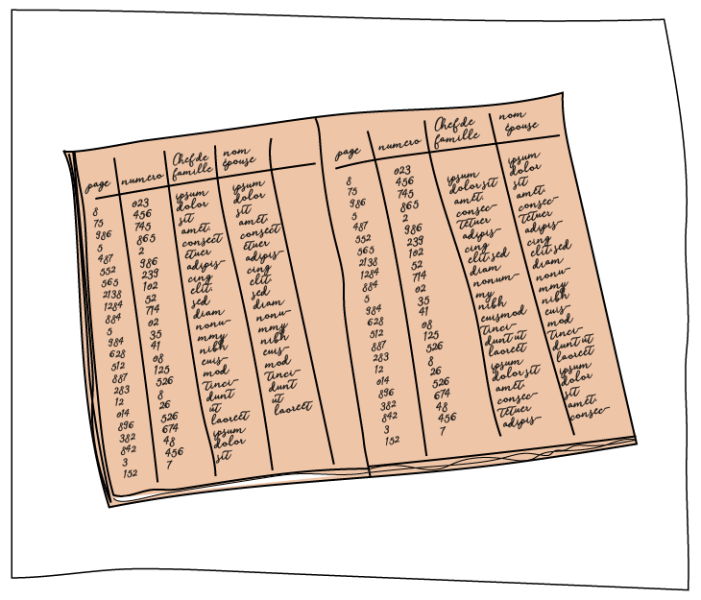 page numero Chef de famille nom épouse
8 023 ipsum ipsum
75 456 dolor dolor
986 745 sit sit
5 865 amet. amet.
487 2 consect consect
552 986 etuer etuer
565 239 adipis- adipis-
2138 102 cing cing
1284 52 elit. elit.
884 714 sed sed
5 02 diam diam
984 35 nonu- nonu-
628 41 mmy mmy
512 08 nibh nibh
887 125 euis- euis-
283 526 mod mod
12 8 tinci- tinci-
014 26 dunt dunt
896 526 ut ut
382 674 laoreet laoreet
842 48 ipsum
3 456 dolor
152 7 sit
page numero Chef de famille nom épouse
8 023 ipsum ipsum
75 456 dolor sit dolor
986 745 amet. sit
5 865 consec- amet.
487 2 tetuer consec-
552 986 adipis- tetuer
565 239 cing adipis-
2138 102 elit.sed cing
1284 52 diam elit.sed
884 714 nonum- diam
5 02 my nonu-
984 35 nibh mmy
628 41 euismod nibh
512 08 tinci- euis-
887 125 dunt ut mod
283 526 laoreet tinci-
12 8 ipsum dunt ut
014 26 dolor sit laoreet
896 526 amet. ipsum
382 674 consec- dolor
842 48 tetuer sit
3 456 adipis- amet.
152 7 consec-